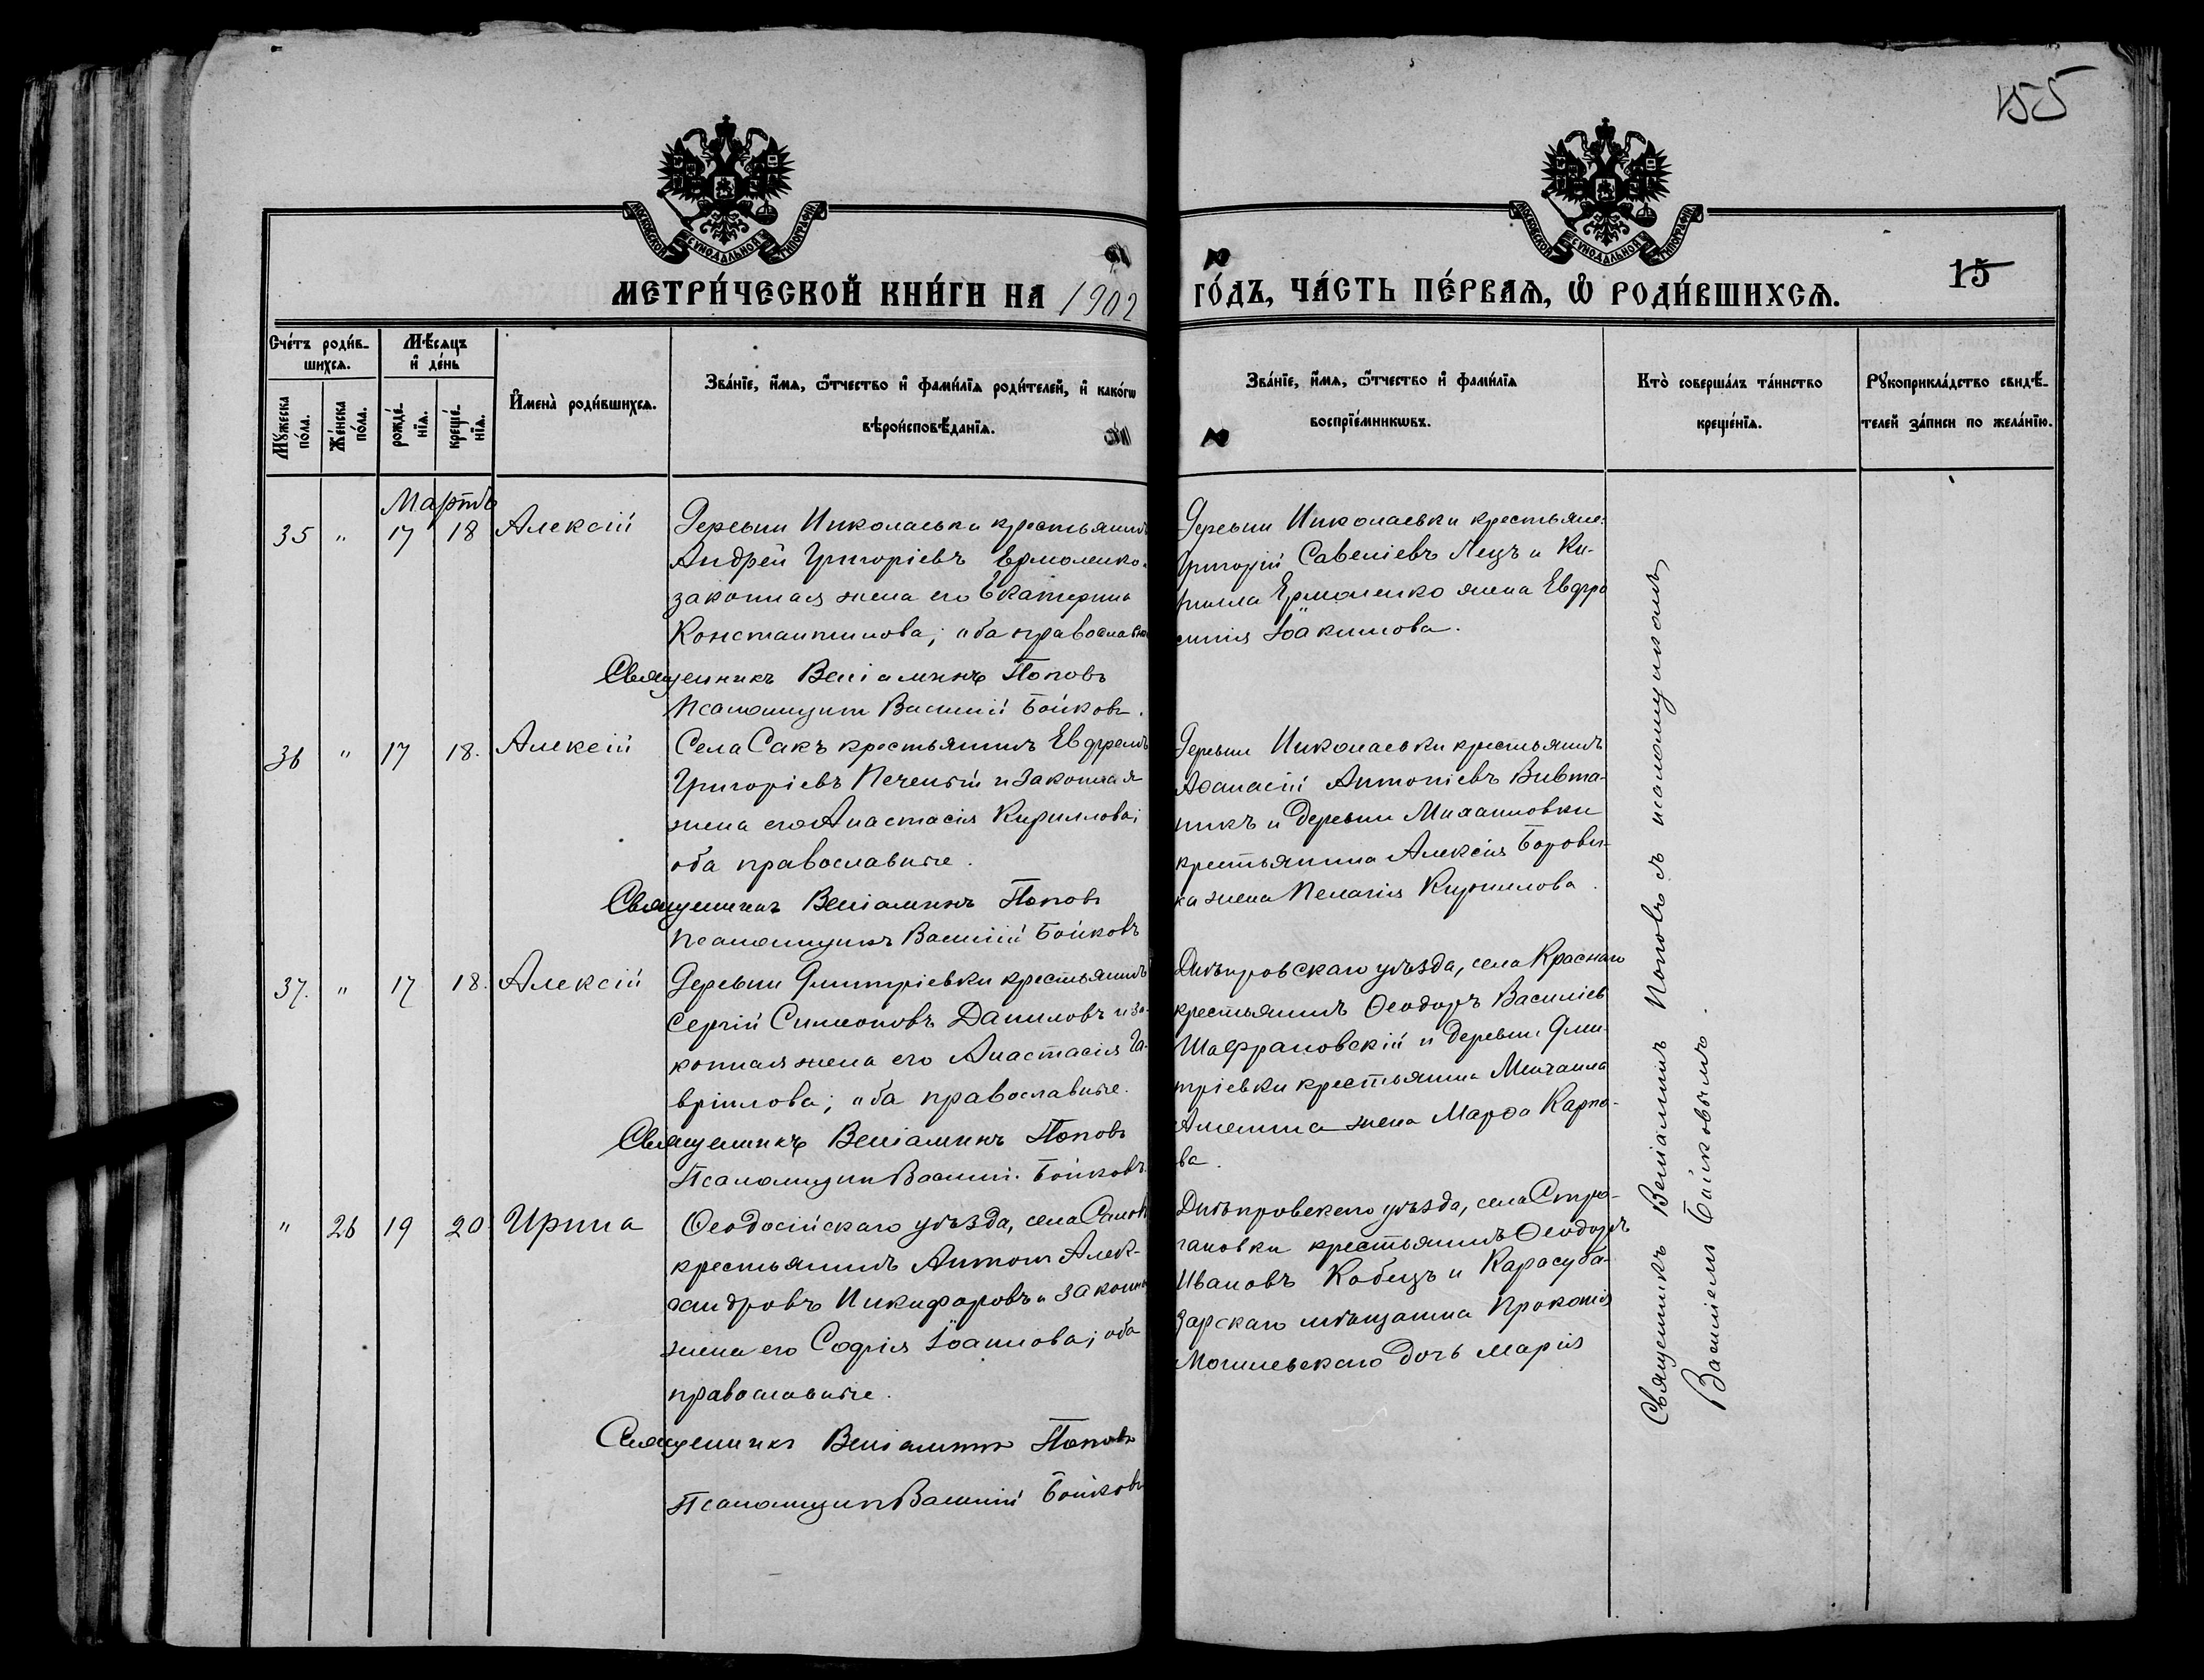 155
МОСКОВСКОЙ СУНОДАЛЬНОЙ ТИПОГРАФІИ
МОСКОВСКОЙ СУНОДАЛЬНОЙ ТИПОГРАФІИ
МЕТРИ́ЧЕСКОЙ КНИ́ГИ НА 1902 ГО́ДЪ, ЧА́СТЬ ПЕ́РВАѦ, Ѽ РОДИ́ВШИХСѦ.
15
Счéтъ роди́в-
шихсѧ.
Мꙋ́жеска по́ла.
Же́нска по́ла.
Мѣ́сѧцъ
и҆ де́нь
рожде́-нїѧ.
креще́-нїѧ.
И҆мена̀ роди́вшихсѧ.
Зва́нїе, и҆́мѧ, ѻ҆́тчество и҆ фами́лїѧ роди́телей, и҆ како́гѡ
вѣроисповѣ́данїѧ.
Зва́нїе, и҆́мѧ, ѻ҆́тчество и҆ фами́лїѧ
воспрїе́мникѡвъ.
Кто̀ соверша́лъ та́инство
креще́нїѧ.
Рꙋкоприкла́дство свидѣ́-
телей за́писи по жела́нїю.
Мартъ
35 " 17 18 Алексій
Деревни Николаевки крестьянинъ
Андрей Григоріевъ Ермоленко
законная жена его Екатерина
Константинова; оба православн
Священникъ Веніаминъ Поповъ
Псаломщик Василій Бойковъ.
Деревни Николаевки крестьяне:
Григорій Савеліевъ Лецъ и Ки-
рилла Ермоленко жена Евфро
синія Іоакимова.
36 " 17 18. Алексій
Села Сакъ крестьянинъ Евфремъ
Григоріевъ Печеный и законная
жена его Анастасія Кириллова;
оба православные.
Священникъ Веніаминъ Поповъ
Псаломщикъ Василій Бойковъ
Деревни Николаевки крестьянинъ
Аѳанасій Антоніевъ Вивта-
никъ и деревни Михаиловки
крестьянина Алексія Борови-
ка жена Пелагія Кириллова.
37. " 17 18. Алексій
Деревни Дмитріевки крестьянинъ
Сергій Симеоновъ Даниловъ и за-
конная жена его Анастасія Га-
вріилова; оба православные.
Священникъ Веніаминъ Поповъ
Псаломщик Василій Бойковъ.
Днѣпровскаго уѣзда, села Краснаго
крестьянинъ Ѳеодоръ Василіев
Шафрановскій и деревни Дми-
тріевки крестьянина Михаила
жена Марѳа Карпо-
ва.
" 26 19 20 Ирина
Ѳеодосійскаго уѣзда, села
крестьянинъ Антон Алек-
сандровъ Никифоровъ и законн
жена его Софія Іоаннова; оба
православные.
Священникъ Веніаминъ Поповъ
Псаломщик Василій Бойковъ
Днѣпровскаго уѣзда, села Стро-
гановки крестьянинъ Ѳеодоръ
Ивановъ Кобецъ и Карасуба-
зарскаго мѣщанина Прокопія
Могилевскаго дочь Марія
Священникъ Веніаминъ Поповъ съ псаломщикомъ
Василіемъ Бойковымъ.